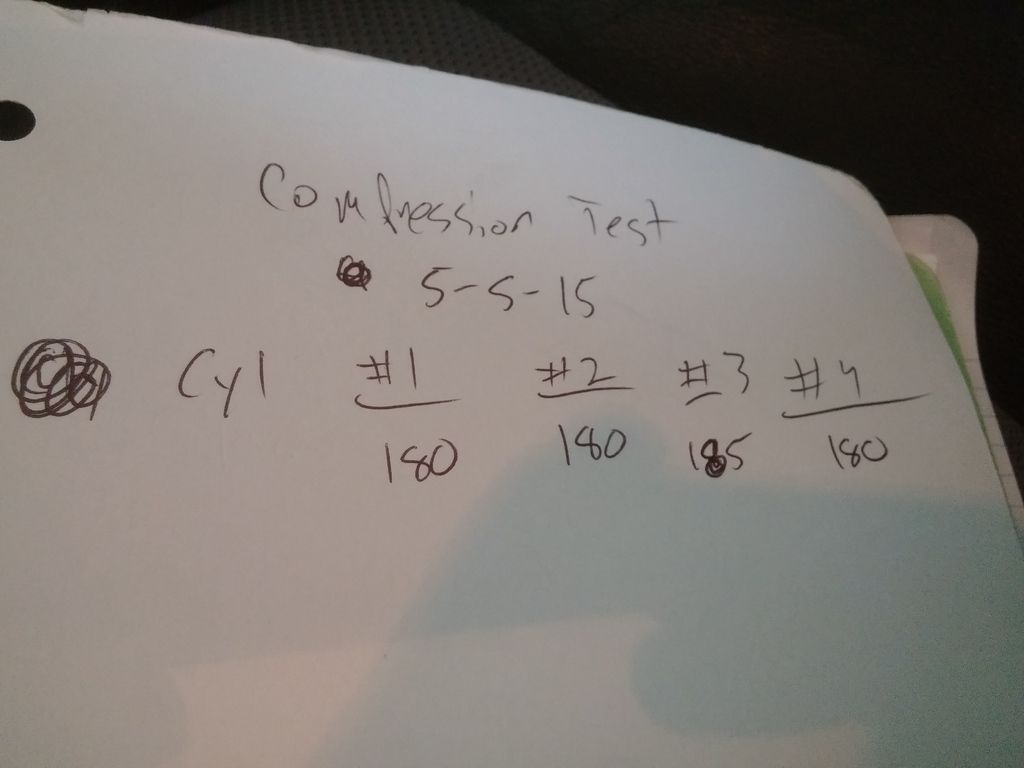 Compression Test
5-5-15
Cyl #1 #2 #3 #4
180 180 185 180